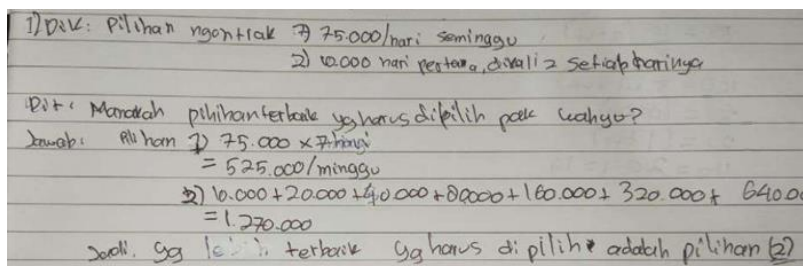 1) Dik: Pilihan ngontrak 1) 75.000/hari seminggu
2) 10.000 hari pertama, dikali 2 setiap harinya
Dit: Manakah pilihan terbaik yg harus dipilih pak wahyu?
Jawab: Pilihan 1) 75.000 × 7 hari
= 525.000/minggu
2) 10.000 + 20.000 + 40.000 + 80.000 + 160.000 + 320.000 + 640.00
= 1.270.000
Jadi, yg lebih terbaik yg harus di pilih adalah pilihan (2)